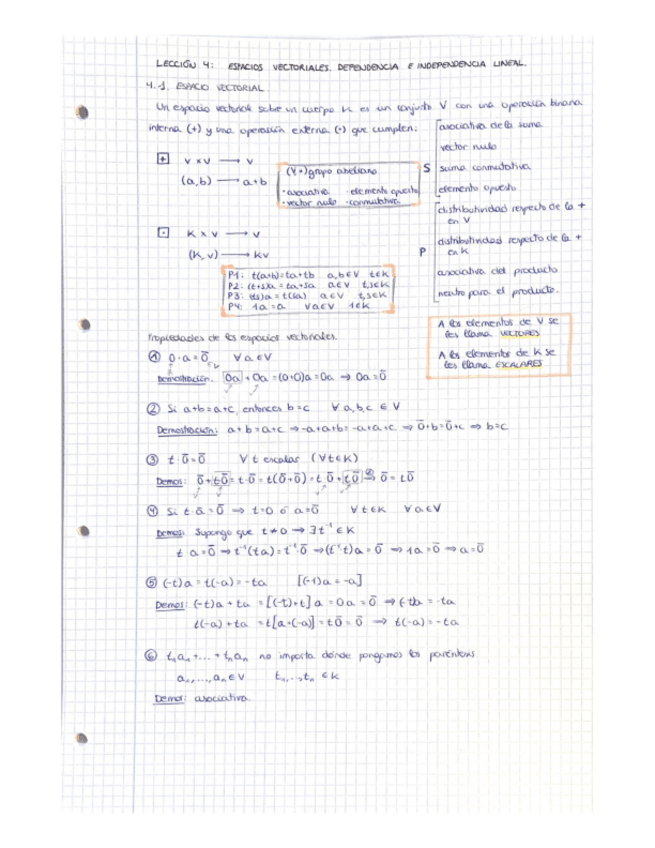 LECCIÓN 4: ESPACIOS VECTORIALES. DEPENDENCIA E INDEPENDENCIA LINEAL.
4.-1. ESPACIO VECTORIAL
Un espacio vectorial sobre un cuerpo K es un conjunto V con una operación binaria
interna (+) y una operación externa (·) que cumplen:
S
asociativa de la suma
vector nulo
suma conmutativa
elemento opuesto
P
distributividad respecto de la +
en V
distributividad respecto de la +
en K
asociativa del producto
neutro para el producto.
+ V x V → V
(a,b) → a+b
(V,+) grupo abeliano
·asociativa ·elemento opuesto
·vector nulo ·conmutativa
· K x V → V
(K,v) → kv
P1: t(a+b)=ta+tb a,b∈V t∈K
P2: (t+s)a=ta+sa a∈V t,s∈K
P3: (ts)a=t(sa) a∈V t,s∈K
P4: 1a=a ∀a∈V 1∈K
A los elementos de V se
les llama VECTORES
A los elementos de K se
les llama ESCALARES
Propiedades de los espacios vectoriales.
① 0·a=0̄ ∀a∈V
Demostración. 0a+0a=(0+0)a=0a ⇒ 0a=0̄
② Si a+b=a+c, entonces b=c ∀a,b,c ∈ V
Demostración: a+b=a+c ⇒ -a+a+b=-a+a+c ⇒ 0̄+b=0̄+c ⇒ b=c
③ t·0̄=0̄ ∀t escalar (∀t∈K)
Demos: 0̄+t0̄=t·0̄=t(0̄+0̄)=t0̄+t0̄ ⇒ 0̄=t0̄
④ Si t·a=0̄ ⇒ t=0 ó a=0̄ ∀t∈K ∀a∈V
Demos: Supongo que t≠0 → ∃t⁻¹∈K
t·a=0̄ ⇒ t⁻¹(ta)=t⁻¹·0̄ ⇒ (t⁻¹t)a=0̄ ⇒ 1a=0̄ ⇒ a=0̄
⑤ (-t)a=t(-a)=-ta [(-1)a=-a]
Demos: (-t)a+ta=[(-t)+t]a=0a=0̄ ⇒ (-t)a=-ta
t(-a)+ta=t[a+(-a)]=t0̄=0̄ ⇒ t(-a)=-ta
⑥ t₁a₁+...+tₙaₙ no importa dónde pongamos los paréntesis
a₁,...,aₙ∈V t₁,...,tₙ∈K
Demos: asociativa.